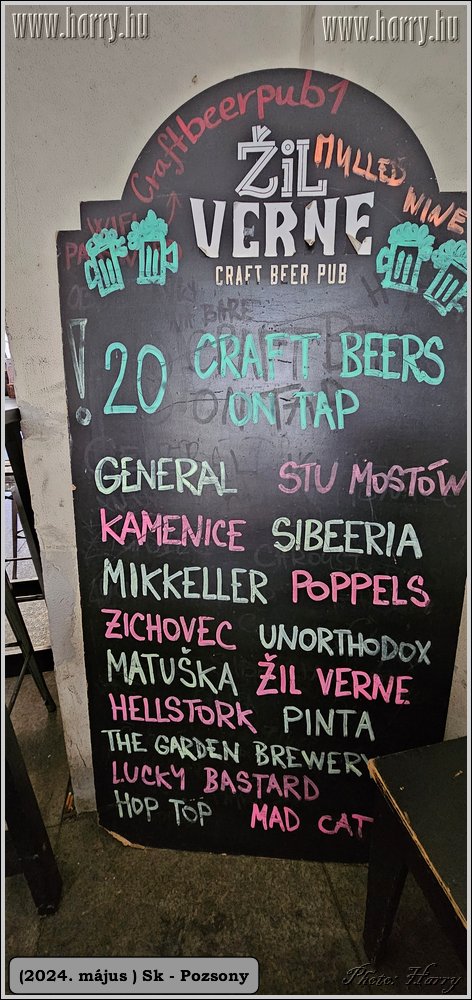 www.harry.hu www.harry.hu
Craftbeerpub1
ŽiL
VERNE
CRAFT BEER PUB
MYLLED
WINE
WIFI
! 20 CRAFT BEERS
ON TAP
GENERAL STU MOSTÓW
KAMENICE SIBEERIA
MIKKELLER POPPELS
ZICHOVEC UNORTHODOX
MATUŠKA ŽIL VERNE
HELLSTORK PINTA
THE GARDEN BREWERY
LUCKY BASTARD
HOP TOP MAD CAT
(2024. május ) Sk - Pozsony
Photo: Harry